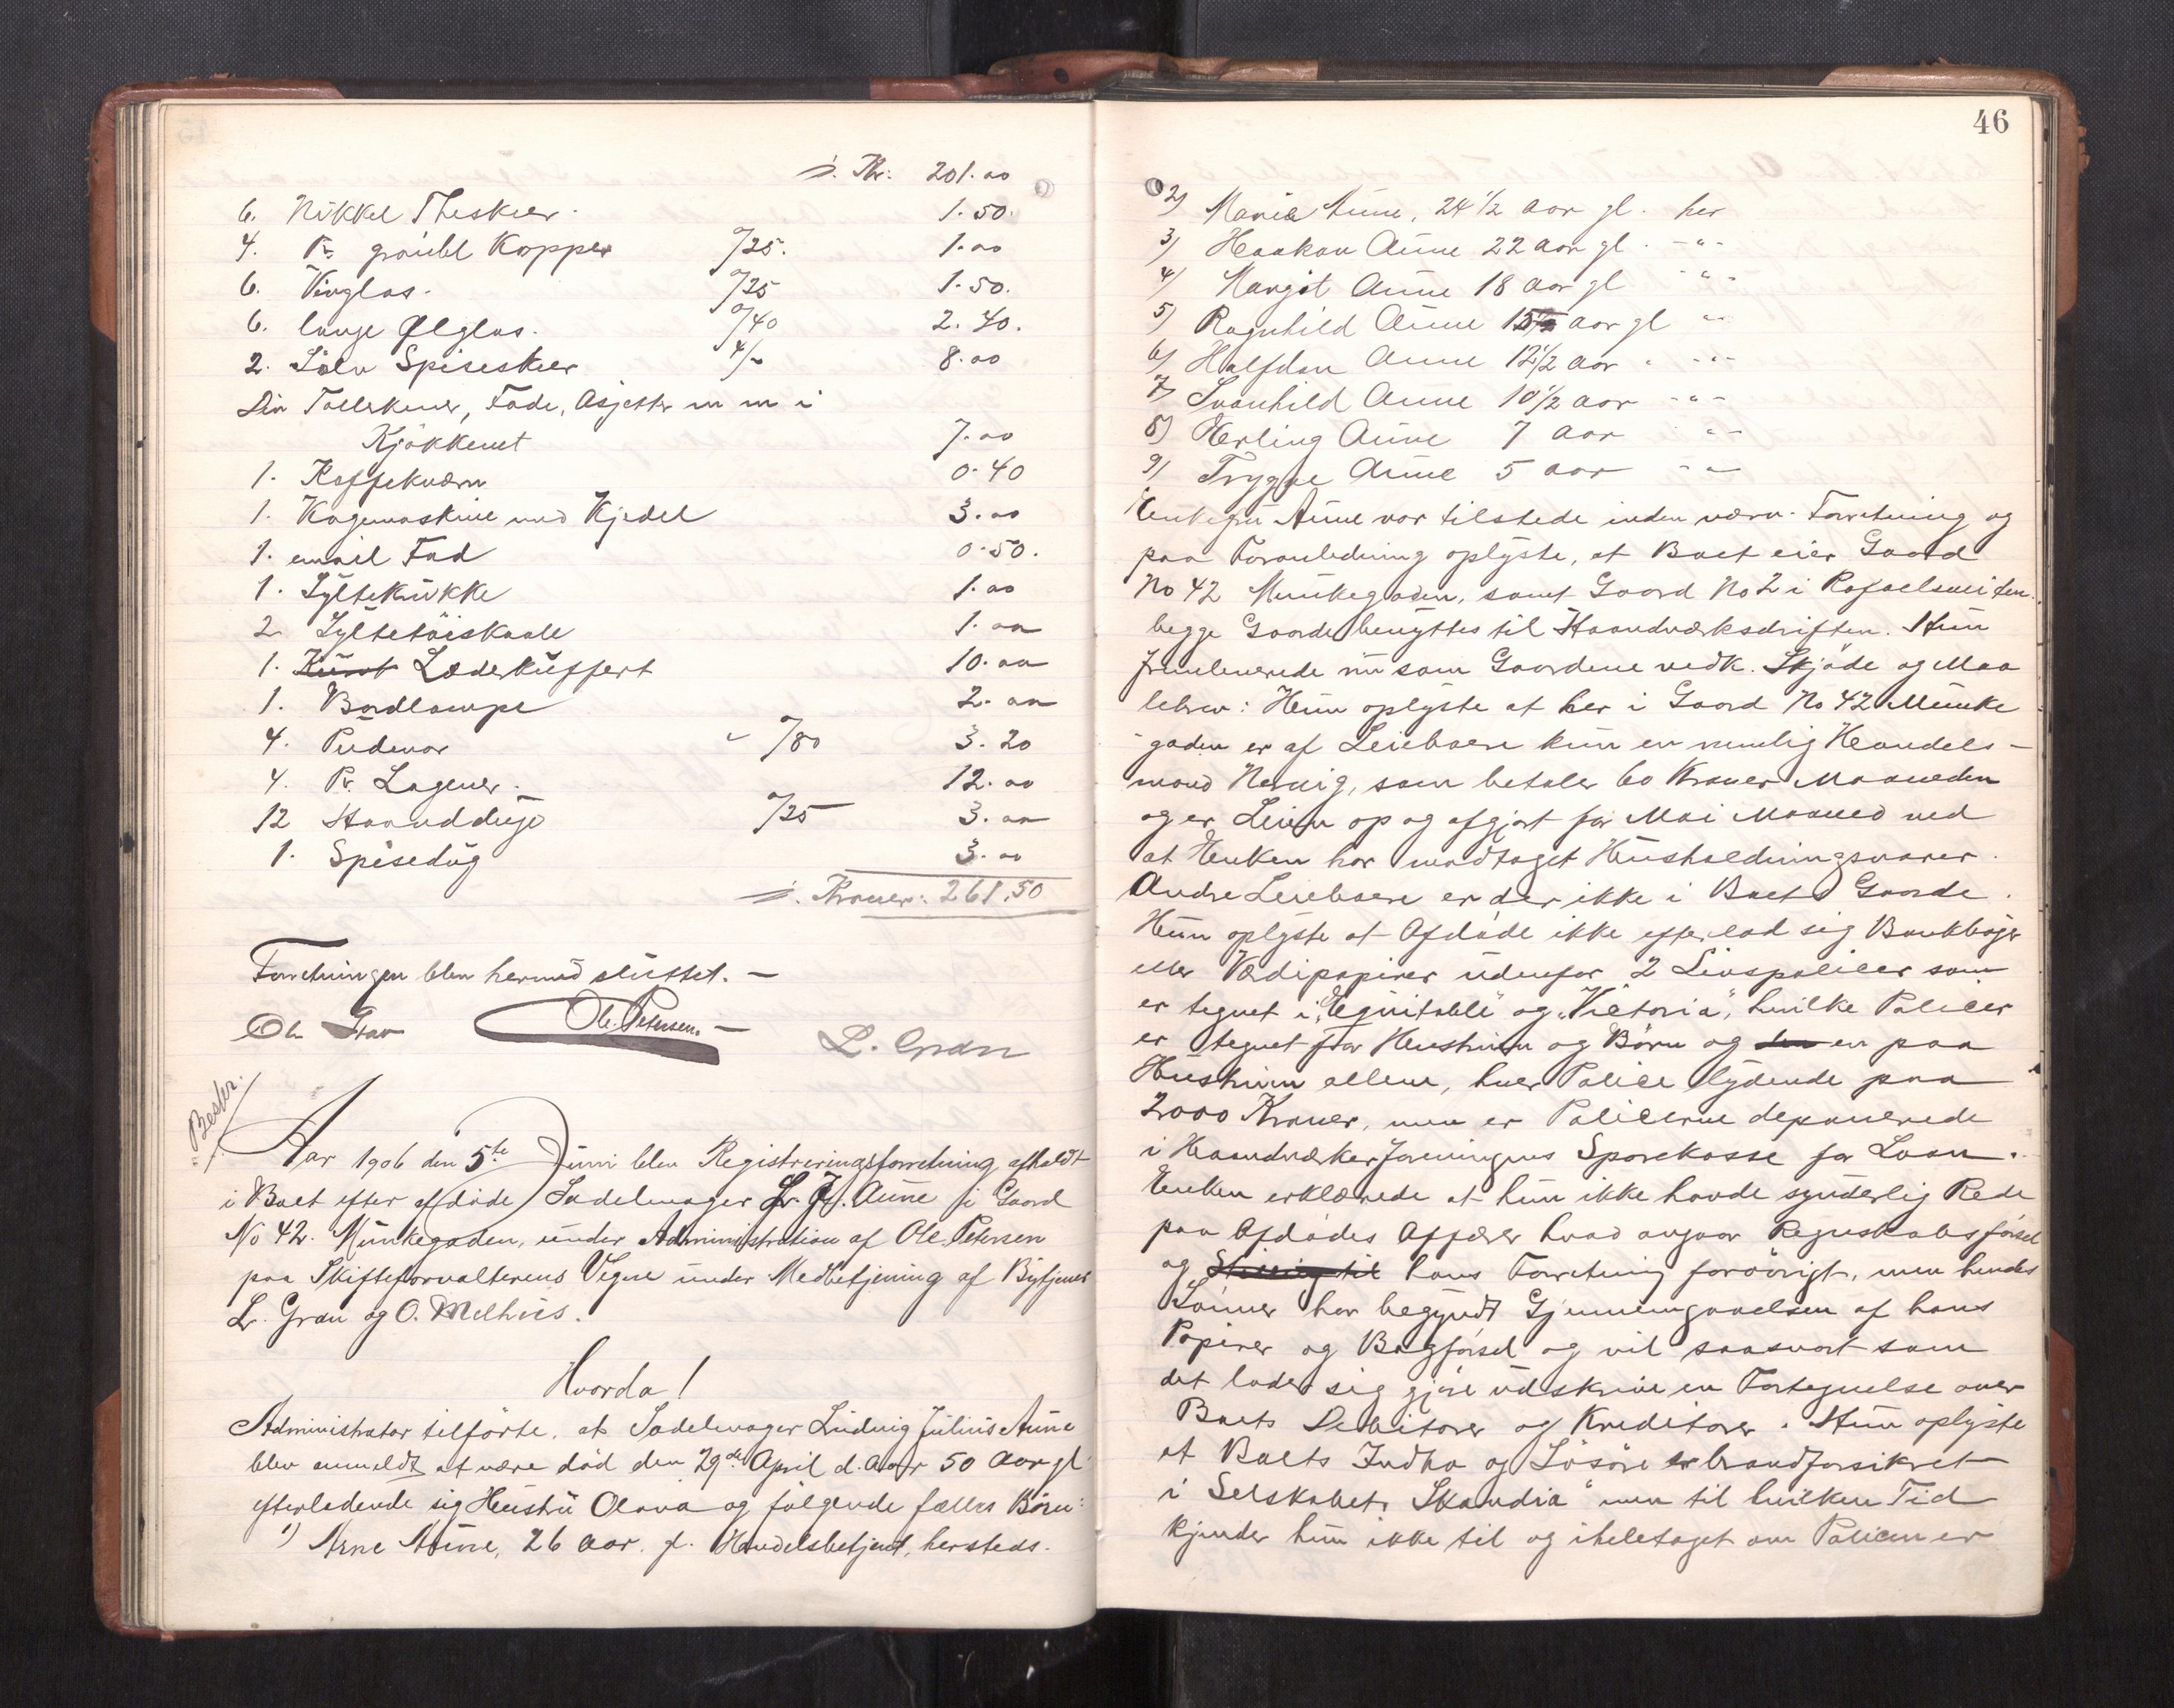 s. Kr. 201.00
6. Nikkel Theskeer. 1.50.
4. Pr. Kopper %25. 1.00
6. Vinglas. %25 1.50.
6. lange Ølglas. %40 2.40.
2. Sølv Spiseskeer 4/- 8.00
Div Tallerkener, Fade, Asjetter m m i
Kjøkkenet 7.00
1. Kaffekværn 0.40
1. Kogemaskine med Kjedel 3.00
1. email Fad 0.50.
1. Syltekrukke 1.00
2 Syltetøiskaale 1.00
1. Læderkuffert 10.00
1. Bordlampe 2.00
4. Puder %80 3.20
4. Pr Lagener. 12.00
12 Haandduge %25 3.00
1. Spisedug 3.00
s. Kroner: 261.50
Forretningen blev hermed sluttet. —
Ole Petersen. — L. Gran
Beskr.
Aar 1906 den 5te Juni blev Registreringsforretning afholdt
i Boet efter afdøde Sadelmager L. J. Aune i Gaard
No 42. Munkegaden, under Administration af Ole Petersen
paa Skifteforvalterens Vegne under Medbetjening af Bytjener
L. Gran og O. Melhus.
Hvorda!
Administrator tilførte, at Sadelmager Ludvig Julius Aune
blev anmeldt at være død den 29de April d. Aar 50 Aar gl
efterladende sig Hustru Olava og følgende fælles Børn:
1) Arne Aune, 26 Aar gl. Handelsbetjent, hersteds.
46
2) Maria Aune, 24 1/2 Aar gl. her
3) Haakon Aune 22 Aar gl. -"-
4) Margit Aune 18 Aar gl -"-
5) Ragnhild Aune 15 Aar gl -"-
6) Halfdan Aune 12 1/2 Aar -"-
7) Svanhild Aune 10 1/2 Aar -"-
8) Herling Aune 7 Aar -"-
9) Trygve Aune 5 Aar -"-
Enkefru Aune var tilstede under nærv. Forretning og
paa Foranledning oplyste, at Boet eier Gaard
No 42 Munkegaden, samt Gaard No 2 i Rafaelsveiten.
begge Gaarde benyttes til Haandværksdriften. Hun
fremleverede nu som Gaardene vedk. Skjøde og Maa
lebrev: Hun oplyste at her i Gaard No 42 Munke
gaden er af Leieboere kun en nemlig Handels-
mand, som betaler 60 Kroner Maaneden
og er Leien op og afgjort for Mai Maaned ved
at Enken har modtaget Husholdningsvarer.
Andre Leieboere er der ikke i Boets Gaarde.
Hun oplyste at Afdøde ikke efterlod sig Bankbøger
eller Værdipapirer udenfor 2 Livspolicer som
er tegnet i "Equitable" og "Victoria", hvilke Policer
er tegnet for Hustruen og Børn og en paa
Hustruen allene, hver Police lydende paa
2000 Kroner, men er Policerne deponerede
i Haandværkerforeningens Sparekasse for Laan.
Enken erklærede at hun ikke havde synderlig Rede
paa Afdødes Affærer hvad angaar Regnskabsførsel
og hans Forretning forøvrigt, men hendes
Sønner har begyndt Gjennemgaaelsen af hans
Papirer og Bogførsel og vil saasnart som
det lader sig gjøre udskrive en Fortegnelse over
Boets Debitorer og Kreditorer. Hun oplyste
at Boets Indbo og Løsøre er brandforsikret
i Selskabet "Skandia" men til hvilken Tid
kjender hun ikke til og iheletaget om Policen er